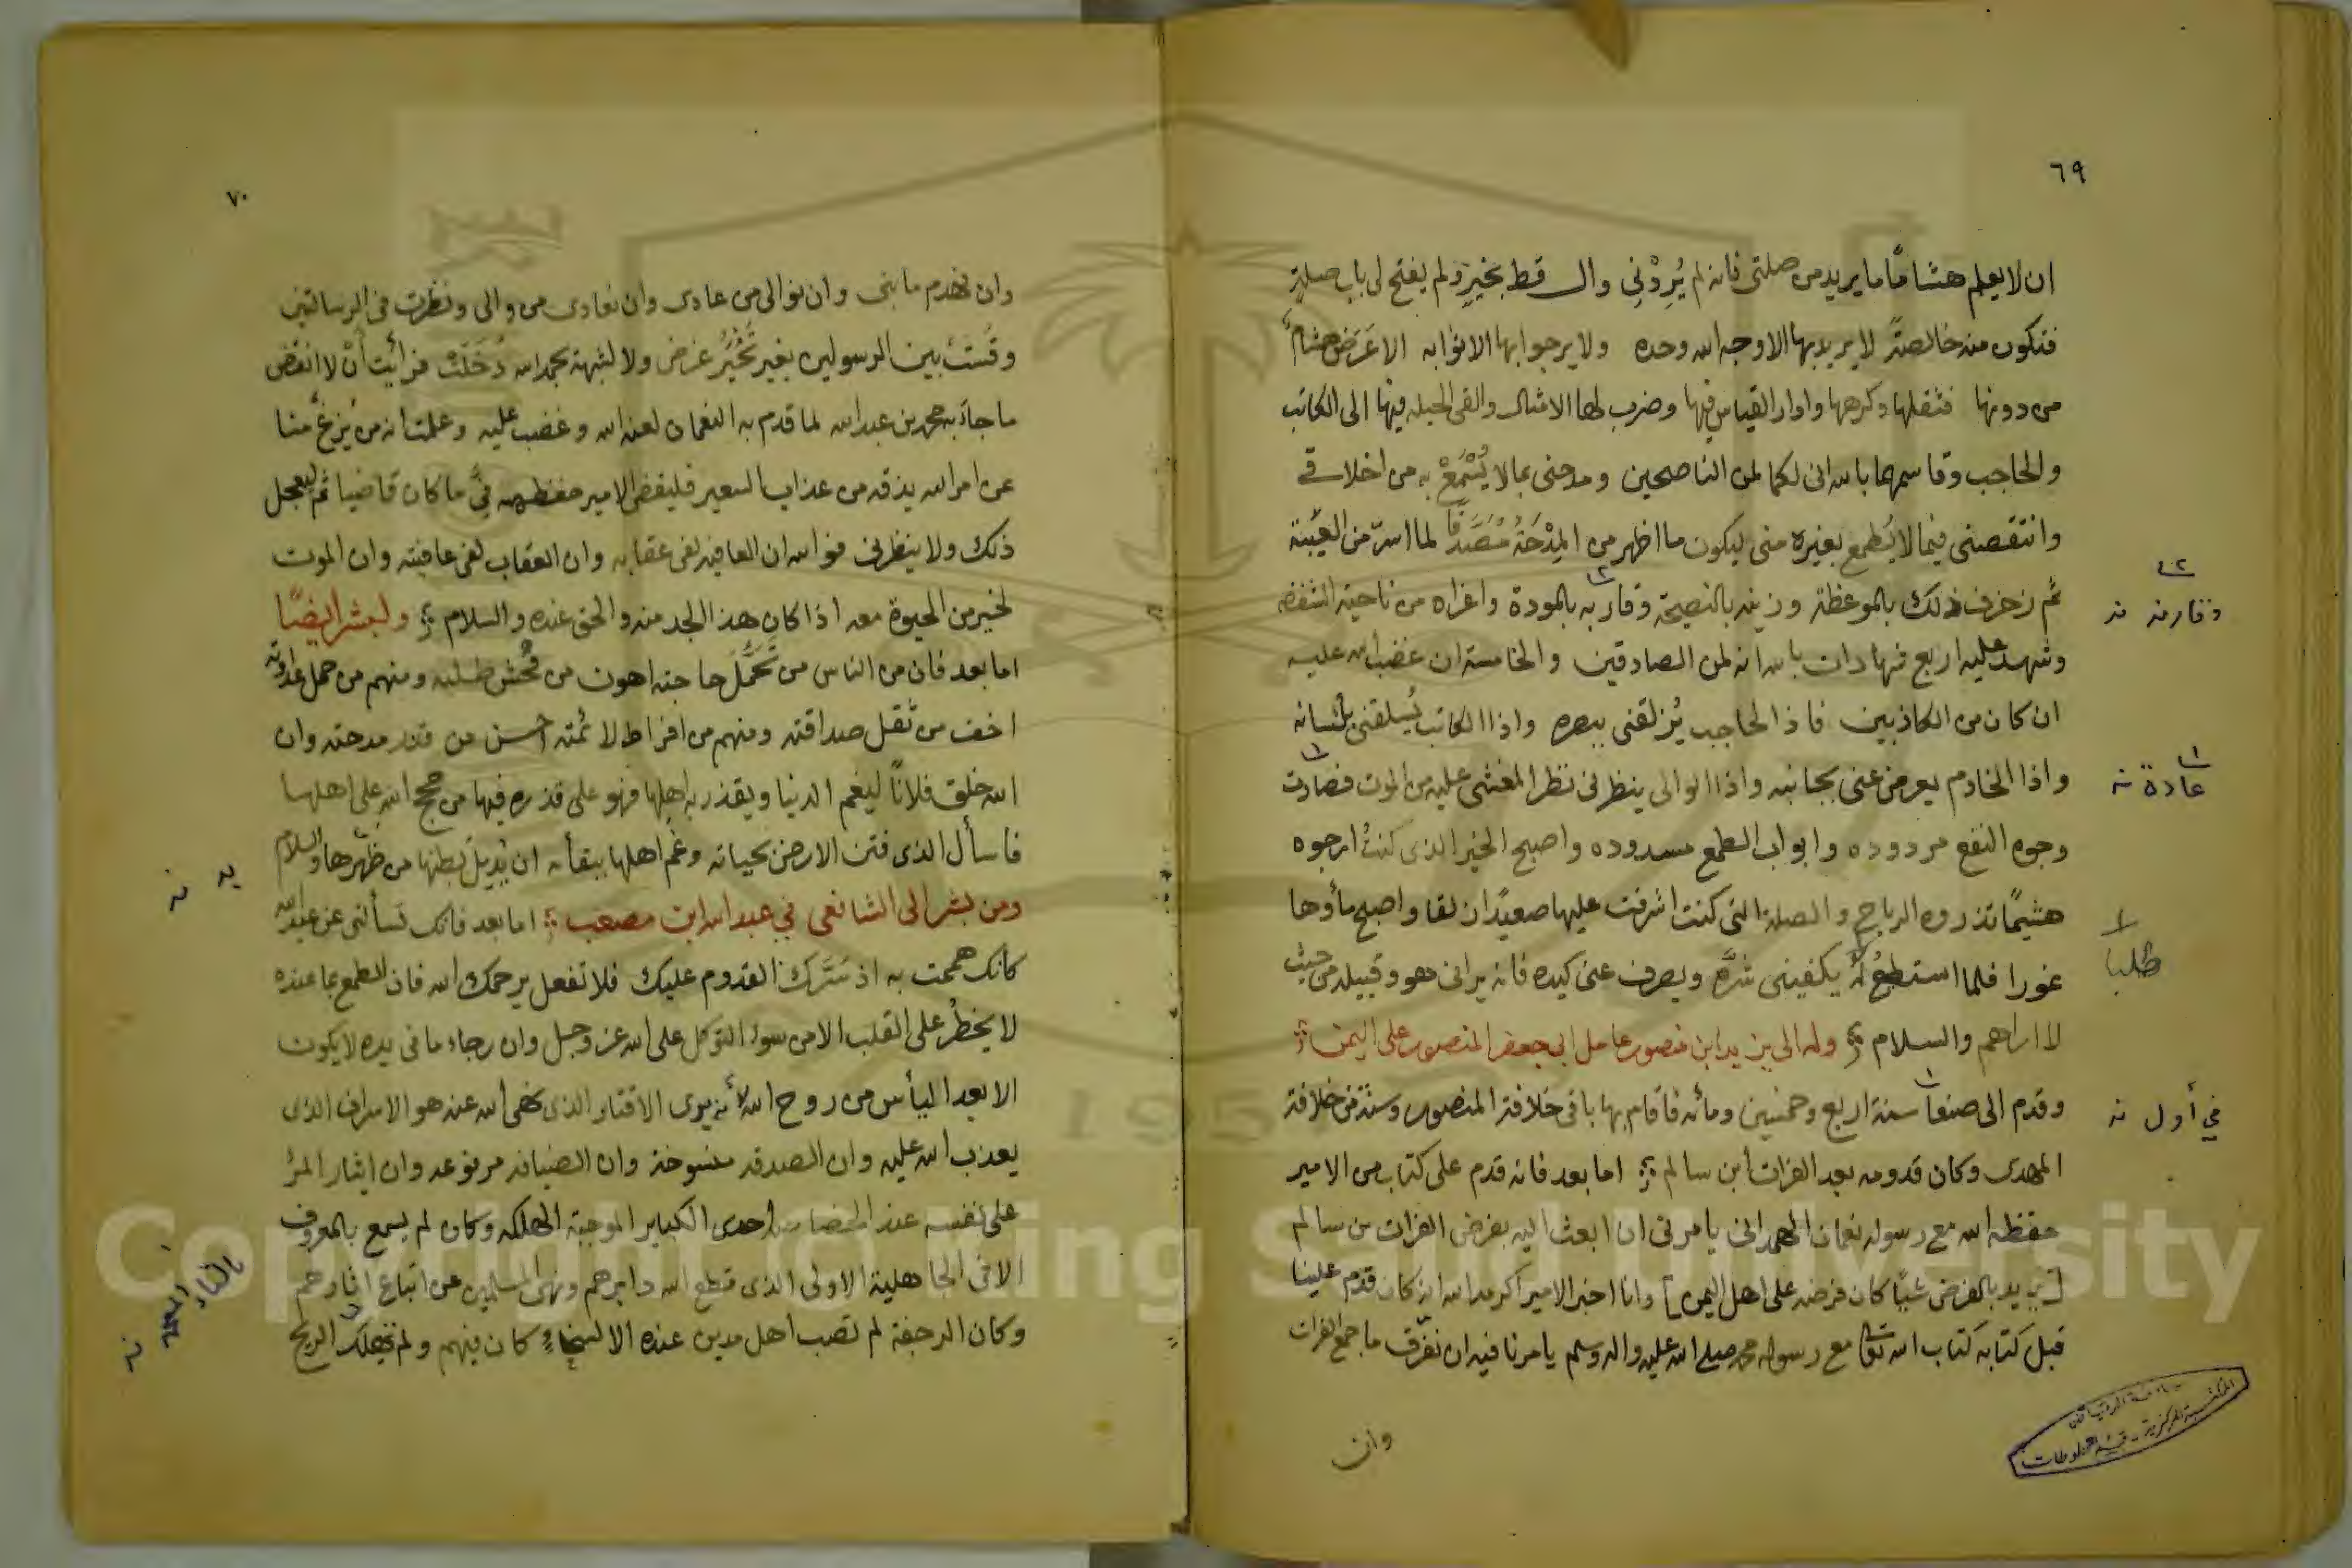 ٦٩
ان لا يعلم هشاما ما يريد من صلتى فانه لم يُرِدْنى والله قط بخير ولم يفتح لى باب صلة
فتكون منه خالصة لا يريد بها الا وجه الله وحده ولا يرجو بها الا ثوابه الا عَرَض هشام
من دونها فثقلها وكرهها وادار القياس فيها وضرب لها الامثال والقى الحيله فيها الى الكاتب
والحاجب وقاسمهما بالله انى لكما لمن الناصحين ومدحنى بما لا يُسْمَعُ به من اخلاقى
وانتقصنى فيما لا يُطمع بغيره منى ليكون ما اظهر من المِدْحَة مُصَدَقًا لما اسرّ من الغيبة
ثم زخرف ذلك بالموعظة وزينه بالنصيحة وقاربه بالمودة واغراه من ناحية الشفقه
وشهد عليه اربع شهادات بالله انه لمن الصادقين والخامسة ان غضب الله عليه
ان كان من الكاذبين فاذا الحاجب يُزلقنى ببصره واذا الكاتب يُسلقنى بلسانه
واذا الخادم يعرض عنى بجانبه واذا الوالى ينظرنى نظر المغشى عليه من الموت فصادت
وجوه النفع مردوده وابواب الطمع مسدوده واصبح الخير الذى كنتُ ارجوه
هشيمًا تذروه الرياح والصلة التى كنت اشرفت عليها صعيدًا زلقا واصبح مأوها
غورا فلما استطع له يكفينى شرَّه ويصرف عنى كيده فانه يرانى هو وقبيله من حيث
لا اراهم والسلام وله الى يزيد ابن منصور عامل ابى جعفر المنصور على اليمن
وقدم الى صنعا سنة اربع وخمسين ومائه فاقام بها باقى خلافة المنصور وسنة من خلافة
المهدى وكان قدومه بعد الفرات ابن سالم اما بعد فانه قدم على كتاب من الامير
حفظه الله مع رسوله نعمان الهمدانى يامرنى ان ابعث اليه بفرض الفرات بن سالم
[يريد بالفرض شيئا كان فرضه على اهل اليمن] وانا اخبر الامير اكرمه الله انه كان قدم علينا
قبل كتابه كتاب الله تعا مع رسوله محمد صلى الله عليه واله وسلم يامرنا فيه ان نفرّق ما جمع الفرات
وان
وقارنه نه
عادة نه
طلبا
فى أول نه
٧٠
وان نهدم ما بنى وان نوالى من عادى وان نعادى من والى ونظرت فى الرسالتين
وقستُ بين الرسولين بغير تَحَيُّرُ عرض ولا لشبهة بحمد الله دَخَلَتْ فرأيت أنْ لا انقض
ما جآء به محمد بن عبد الله لما قدم به النعمان لعنه الله وغضب عليه وعلمت انه من يزغ منا
عن امر الله يذقه من عذاب السعير فليقض الامير حفظه الله فىَّ ما كان قاضيا ثم ليعجل
ذلك ولا ينظرنى فوالله ان العافيه لفى عقابه وان العقاب لفى عافيته وان الموت
لخير من الحيوة معه اذا كان هذا الجد منه والحق عنده والسلام ولبشر ايضًا
اما بعد فان من الناس من تَحَمُّلَ حاجته اهون من فُحش طلبه ومنهم من حمل عداوته
اخف من ثقل صداقته ومنهم من افراط لائمته احسن من قدر مدحته وان
الله خلق فلانًا ليغم الدنيا ويقذر به اهلها فهو على قذره فيها من حجج الله على اهلها
فاسأل الذى فتن الارض بحياته وغم اهلها ببقائه ان يُديل بطنها من ظهرها والسلام
ومن بشر الى الشافعى فى عبد الله ابن مصعب اما بعد فانك تسألنى عن عبد الله
كانك هممت به اذ سَرَّك القدوم عليك فلا تفعل يرحمك الله فان الطمع بما عنده
لا يخطر على القلب الا من سوء التوكل على الله عز وجل وان رجاء ما فى يده لا يكون
الا بعد اليأس من روح الله لأنه يرى الاقتار الذى نهى الله عنه هو الاسراف الذى
يعذب الله عليه وان الصدقه منسوخة وان الضيافه مرفوعه وان ايثار المرُ
على نفسه عند الخصاصه احدى الكباير الموجبة الهلكه وكان لم يسمع بالمعروف
الا فى الجاهلية الاولى الذى قطع الله دابرهم ونهى المسلمين عن اتباع اثارهم
وكان الرجفة لم تصب اهل مدين عنده الا لسخاءٍ كان فيهم ولم تهلك الريح
يه نه
نه
Copyright © King Saud University
195